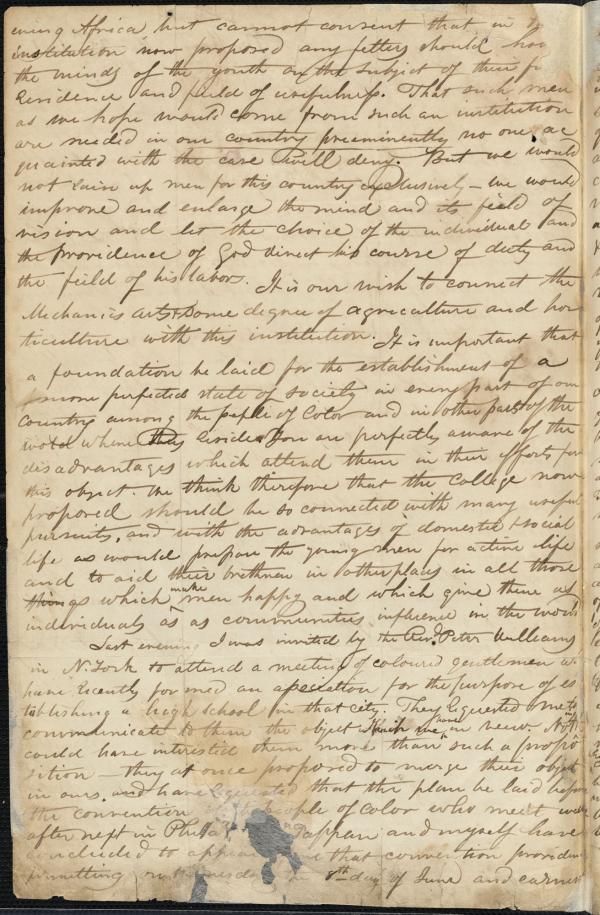 Africa, but cannot consent that in
institution now proposed any fetters should
the minds of the youth on the subject of their
Residence and field of usefulness. That such men
as we hope would come from such an institution
are needed in our country preeminently no one ac
quainted with the case will deny. But we would
not raise up men for this country exclusively – we would
improve and enlarge the mind and its field of
vision and let the choice of the individual and
the providence of God direct his course of duty and
the feild of his labors. It is our wish to connect the
Mechanics arts & some degree of agriculture and hor
ticulture with this institution. It is important that
a foundation be laid for the establishment of a
more perfected state of society in every part of our
Country among the peple of Color and in other parts of the
world where they reside. You are perfectly aware of the
disadvantages which attend them in their efforts for
this object. We think therefore that the College now
proposed should be so connected with many useful
pursuits, and with the advantages of domestic & social
life as would prepare the young men for active life
and to aid their brethren in other places in all those
things which make men happy and which give them as
individuals & as communities influence in the world
Last evening I was invited by the Revd. Peter Williams
in N. York to attend a meeting of coloured gentlemen w.
have recently formed an association for the purpose of es
tablishing a high School in that city. They requested me to
communicate to them the object which we have in view. Noth
could have interested them more than such a propo
sition – they at once proposed to merge their object
in ours. and have requested that the plan be laid before
the convention People of Color who meet
after next in Phila Tappan and myself have
concluded to appear that convention providence
permitting on Wednesday 8th day of June and earnes